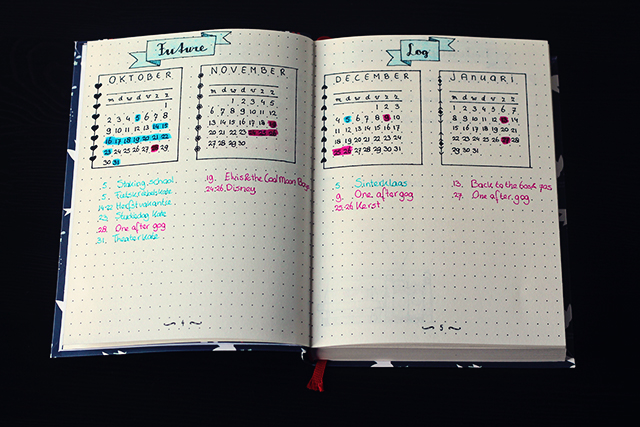 Future
OKTOBER
m d w d v z z
1
2 3 4 5 6 7 8
9 10 11 12 13 14 15
16 17 18 19 20 21 22
23 24 25 26 27 28 29
30 31
5. school
5.
14-22 Herfstvakantie
23. Studiedag Kate
28. One after gog
31. Theater Kate
NOVEMBER
m d w d v z z
1 2 3 4 5
6 7 8 9 10 11 12
13 14 15 16 17 18 19
20 21 22 23 24 25 26
27 28 29 30
19. Elvis & the Cool Moon Boys
24-26. Disney
4
Log
DECEMBER
m d w d v z z
1 2 3
4 5 6 7 8 9 10
11 12 13 14 15 16 17
18 19 20 21 22 23 24
25 26 27 28 29 30 31
5. Sinterklaas
9. One after gog
25-26 Kerst
JANUARI
m d w d v z z
1 2 3 4 5 6 7
8 9 10 11 12 13 14
15 16 17 18 19 20 21
22 23 24 25 26 27 28
29 30 31
13. Back to the
27. One after gog
5